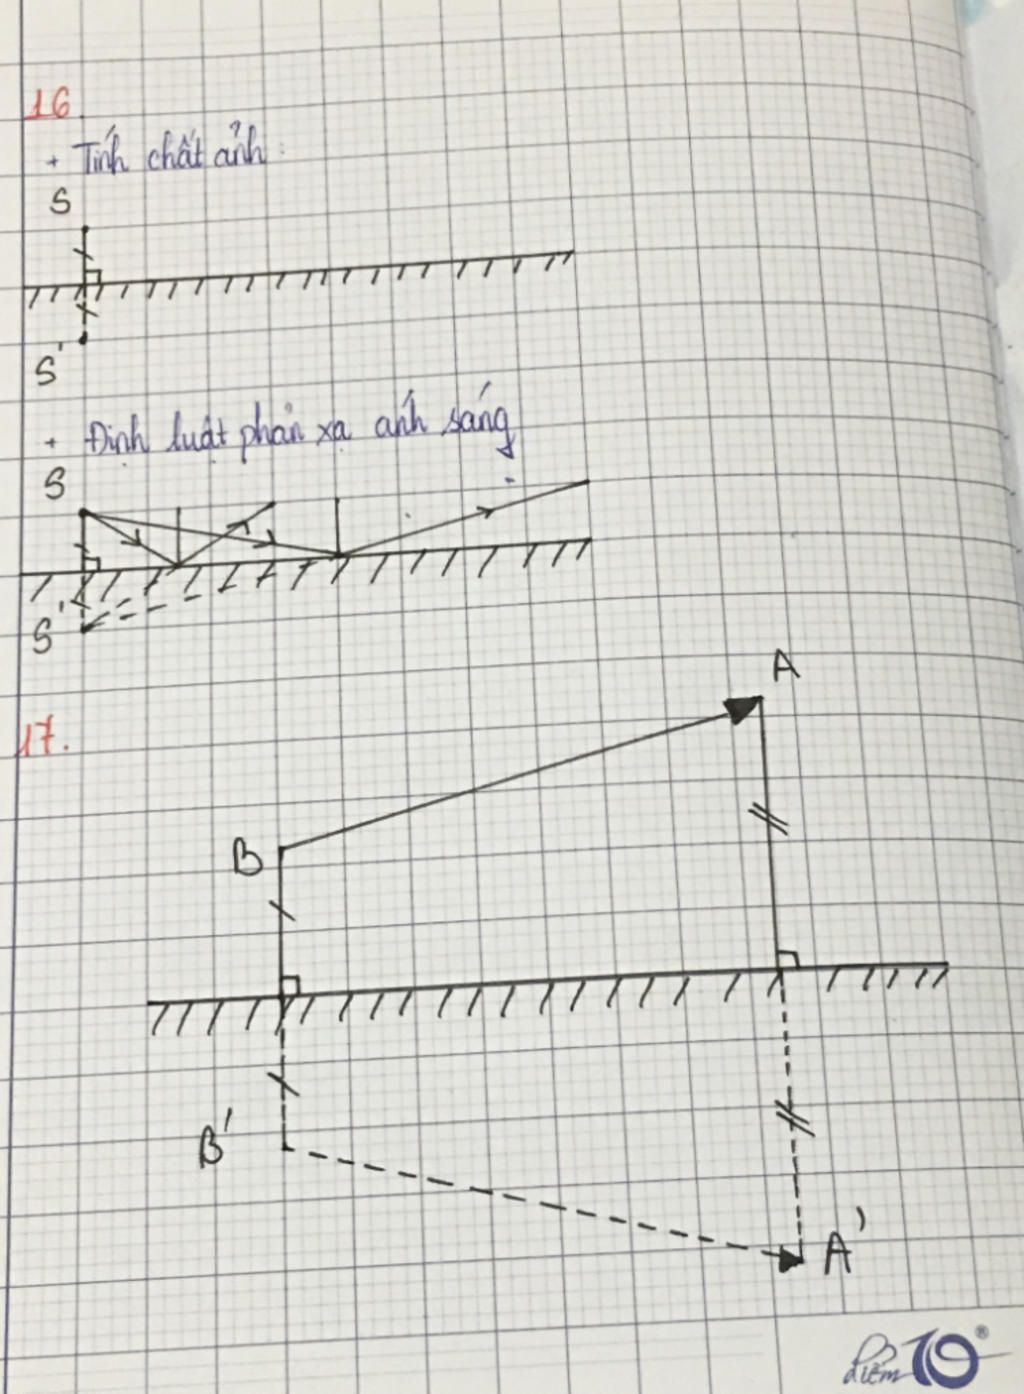 16
+ Tính chất ảnh:
S
S'
+ Định luật phản xạ ánh sáng
S
S'
17.
A
B
B'
A'
Điểm 10®